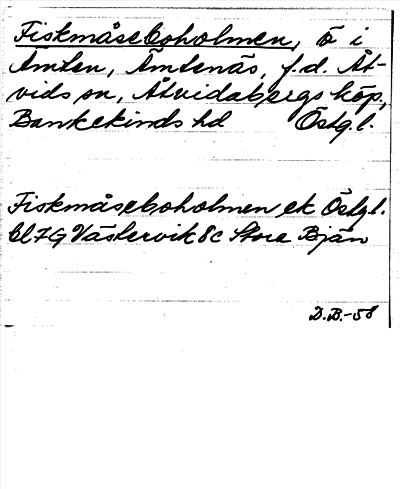 Fiskmåseboholmen, ö i
Ämten, Ämtenäs, f.d. Åt-
vids sn, Åtvidabergs köp,
Bankekinds hd Östg.l.
Fiskmåseboholmen ek Östg.l.
bl 7G Västervik 8c Stora Bjän
D.B.-58